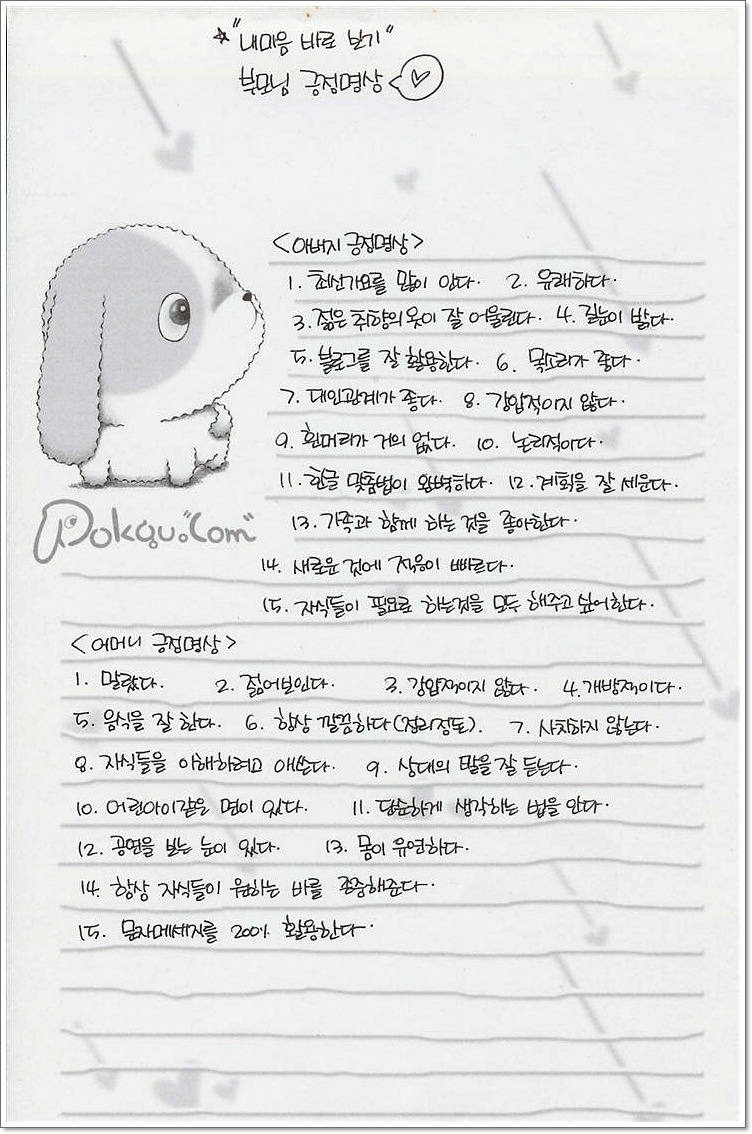 ☆"내마음 바로 보기"
부모님 긍정명상 ♡
<아버지 긍정명상>
1. 최신가요를 많이 안다. 2. 유쾌하다.
3. 젊은 취향의 옷이 잘 어울린다. 4. 길눈이 밝다.
5. 블로그를 잘 활용한다. 6. 목소리가 좋다.
7. 대인관계가 좋다. 8. 강압적이지 않다.
9. 흰머리가 거의 없다. 10. 논리적이다.
11. 한글 맞춤법이 완벽하다. 12. 계획을 잘 세운다.
13. 가족과 함께 하는 것을 좋아한다.
Pokgu."Com"
14. 새로운 것에 적응이 빠르다.
15. 자식들이 필요로 하는것을 모두 해주고 싶어한다.
<어머니 긍정명상>
1. 말랐다. 2. 젊어보인다. 3. 강압적이지 않다. 4. 개방적이다.
5. 음식을 잘 한다. 6. 항상 깔끔하다(정리정돈). 7. 사치하지 않는다.
8. 자식들을 이해하려고 애쓴다. 9. 상대의 말을 잘 듣는다.
10. 어린아이같은 면이 있다. 11. 단순하게 생각하는 법을 안다.
12. 공연을 보는 눈이 있다. 13. 몸이 유연하다.
14. 항상 자식들이 원하는 바를 존중해준다.
15. 문자메세지를 200% 활용한다.